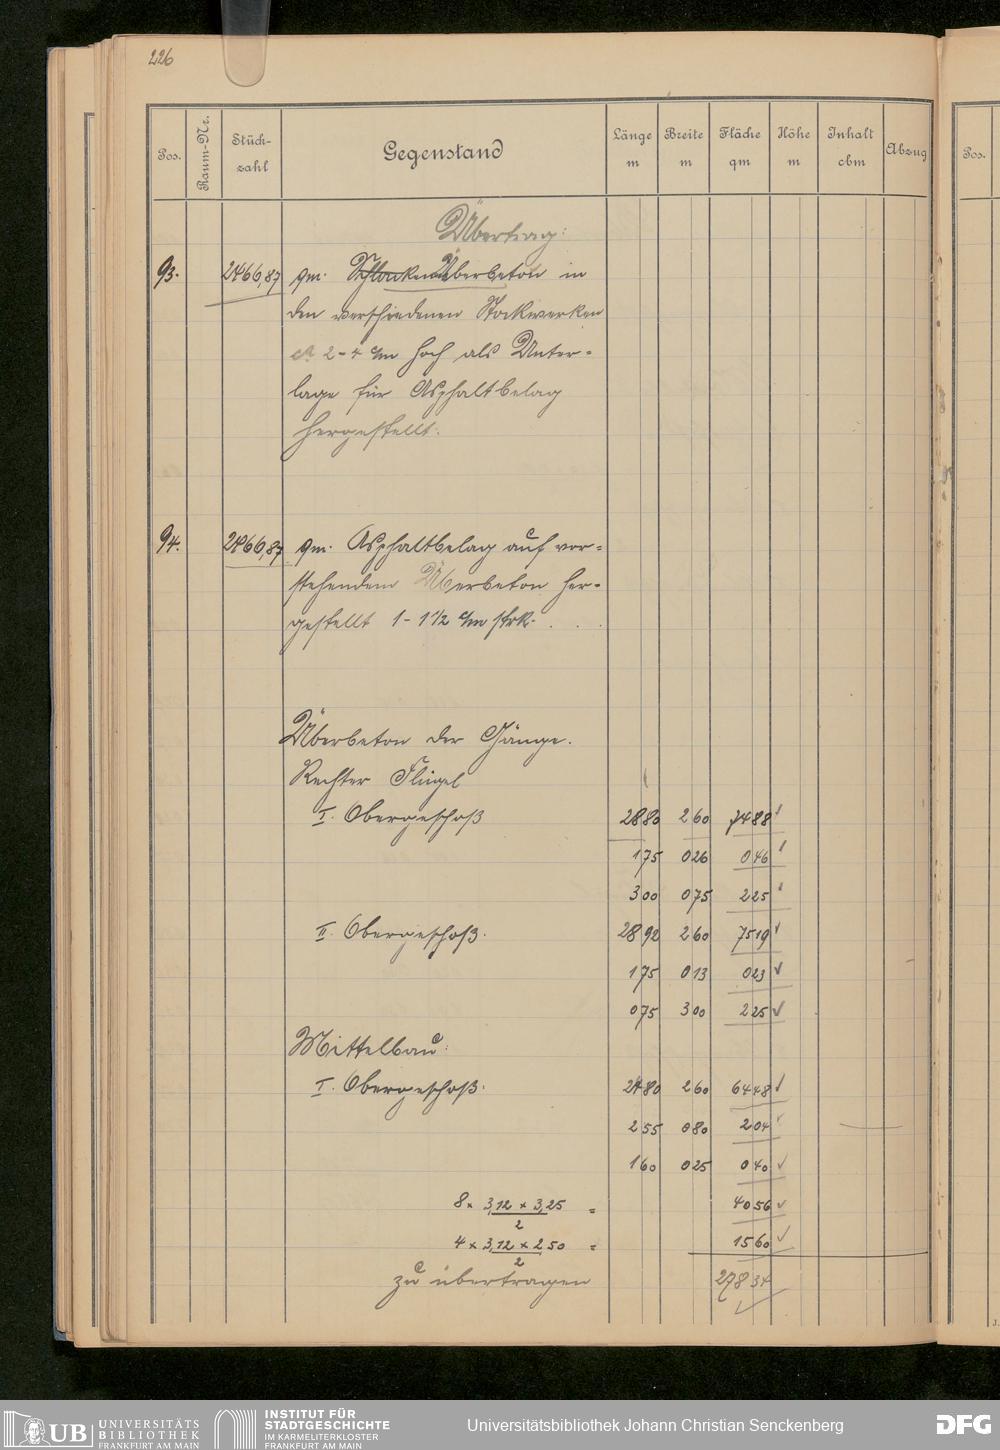 226
Pos.
Raum-Nr.
Stück-
zahl
Gegenstand
Länge
m
Breite
m
Fläche
qm
Höhe
m
Inhalt
cbm
Abzug
Pos.
Übertrag:
93. 2466,87 qm. Schlacken Überbeton in
den verschiedenen Stockwerken
ca 2-4 c/m hoch als Unter-
lage für Asphaltbelag
hergestellt.
94. 2466,87 qm. Asphaltbelag auf vor-
stehendem Überbeton her-
gestellt 1- 1 1/2 c/m strk. . . .
Überbeton der Gänge.
Rechter Flügel
I. Obergeschoß 28 80 2 60 74 88
1 75 0 26 0 46
3 00 0 75 2 25
II. Obergeschoß. 28 92 2 60 75 19
1 75 0 13 0 23
0 75 3 00 2 25
Mittelbau:
I. Obergeschoß. 24 80 2 60 64 48
2 55 0 80 2 04
1 60 0 25 0 40
8 x 3,12 x 3,25 = 40 56
2
4 x 3,12 x 2,50 = 15 60
2
zu übertragen 278 34
UB UNIVERSITÄTS
BIBLIOTHEK
FRANKFURT AM MAIN
INSTITUT FÜR
STADTGESCHICHTE
IM KARMELITERKLOSTER
FRANKFURT AM MAIN
Universitätsbibliothek Johann Christian Senckenberg
DFG